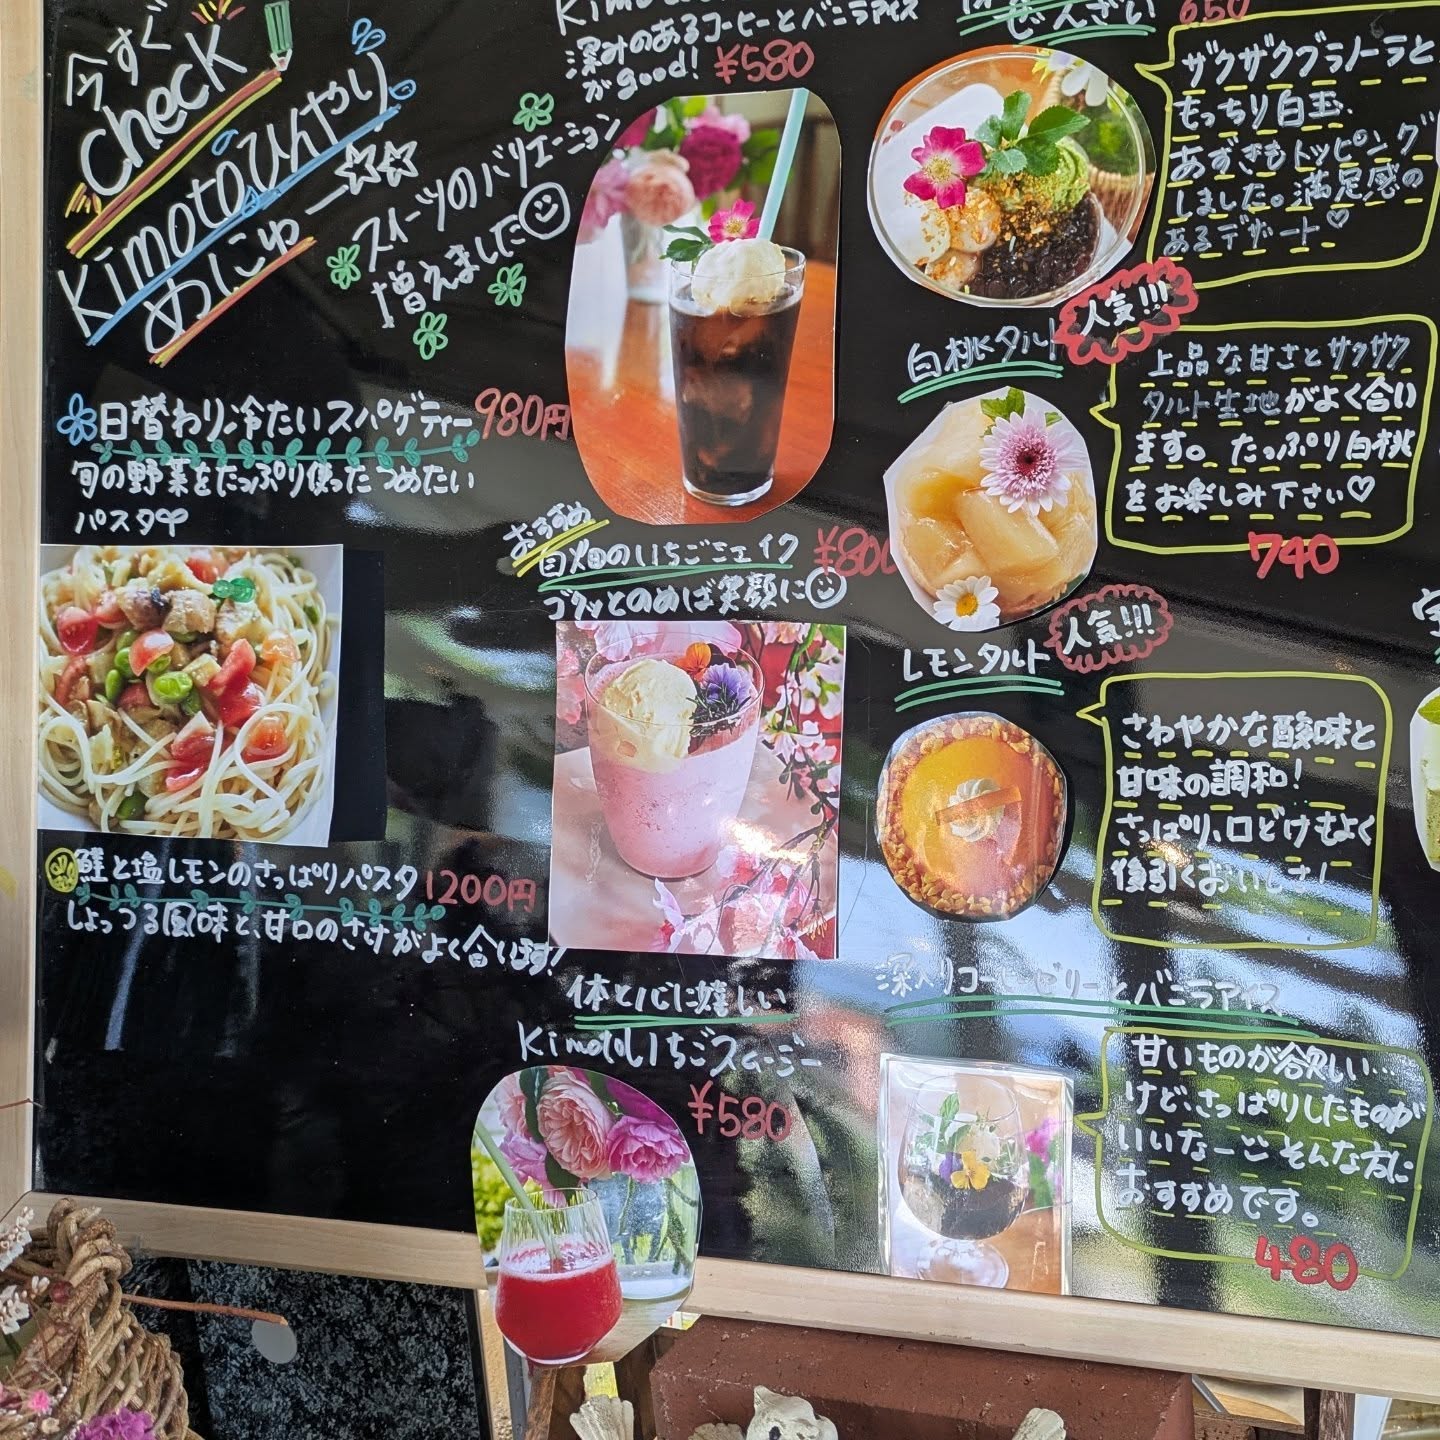 今すぐ
Check
Kimotoひんやり
めにゅー☆☆
スイーツのバリエーション
増えました☺
日替わり冷たいスパゲティー 980円
旬の野菜をたっぷり使ったつめたい
パスタ♡
鮭と塩レモンのさっぱりパスタ 1200円
しょっつる風味と、甘口のさけがよく合います!
深みのあるコーヒーとバニラアイス
がgood! ¥580
おすすめ
自火田のいちごミェイク ¥800
ゴクッとのめば笑顔に☺
体と心に嬉しい
Kimotoいちごスムージー
¥580
ぜんざい 650
ザクザクグラノーラと
もっちり白玉、
あずきもトッピング
しました。満足感の
あるデザート♡
白桃タルト 人気!!!
上品な甘さとサクサク
タルト生地がよく合い
ます。たっぷり白桃
をお楽しみ下さい♡
740
レモンタルト 人気!!!
さわやかな酸味と
甘味の調和!
さっぱり、口どけもよく
後引くおいしさ!
深入りコーヒーゼリーとバニラアイス
甘いものが欲しい…
けど、さっぱりしたものが
いいなーごそんな方に
おすすめです。
480